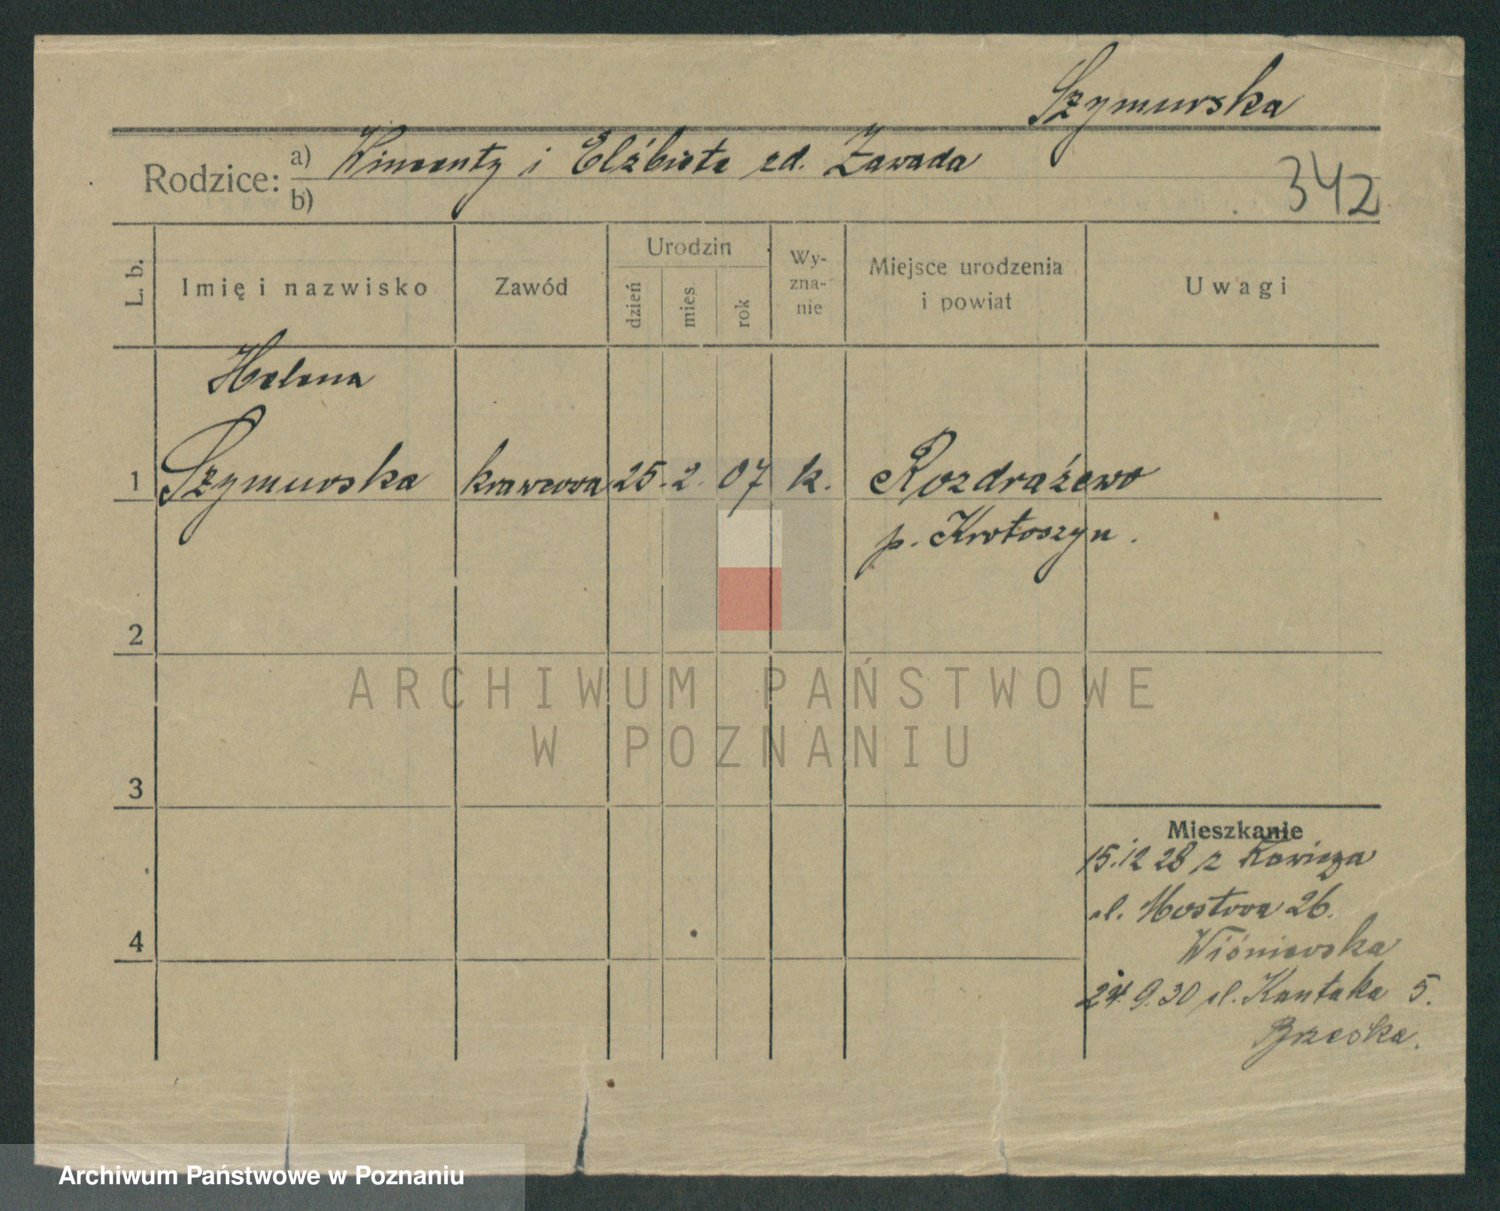 Szymurska
Rodzice: a) Wincenty i Elżbieta zd. Zawada
b)
342
L. b. Imię i nazwisko Zawód Urodzin dzień mies rok Wy-zna-nie Miejsce urodzenia i powiat Uwagi
Helena
1 Szymurska krawcowa 25. 2. 07 k. Rozdrażewo
p. Krotoszyn.
2
ARCHIWUM PAŃSTWOWE
W POZNANIU
3
Mieszkanie
15.12 28 z
ul. Mostowa 26.
4
Wiśniewska
24. 9. 30 ul. Kantaka 5.
Brzeska.
Archiwum Państwowe w Poznaniu